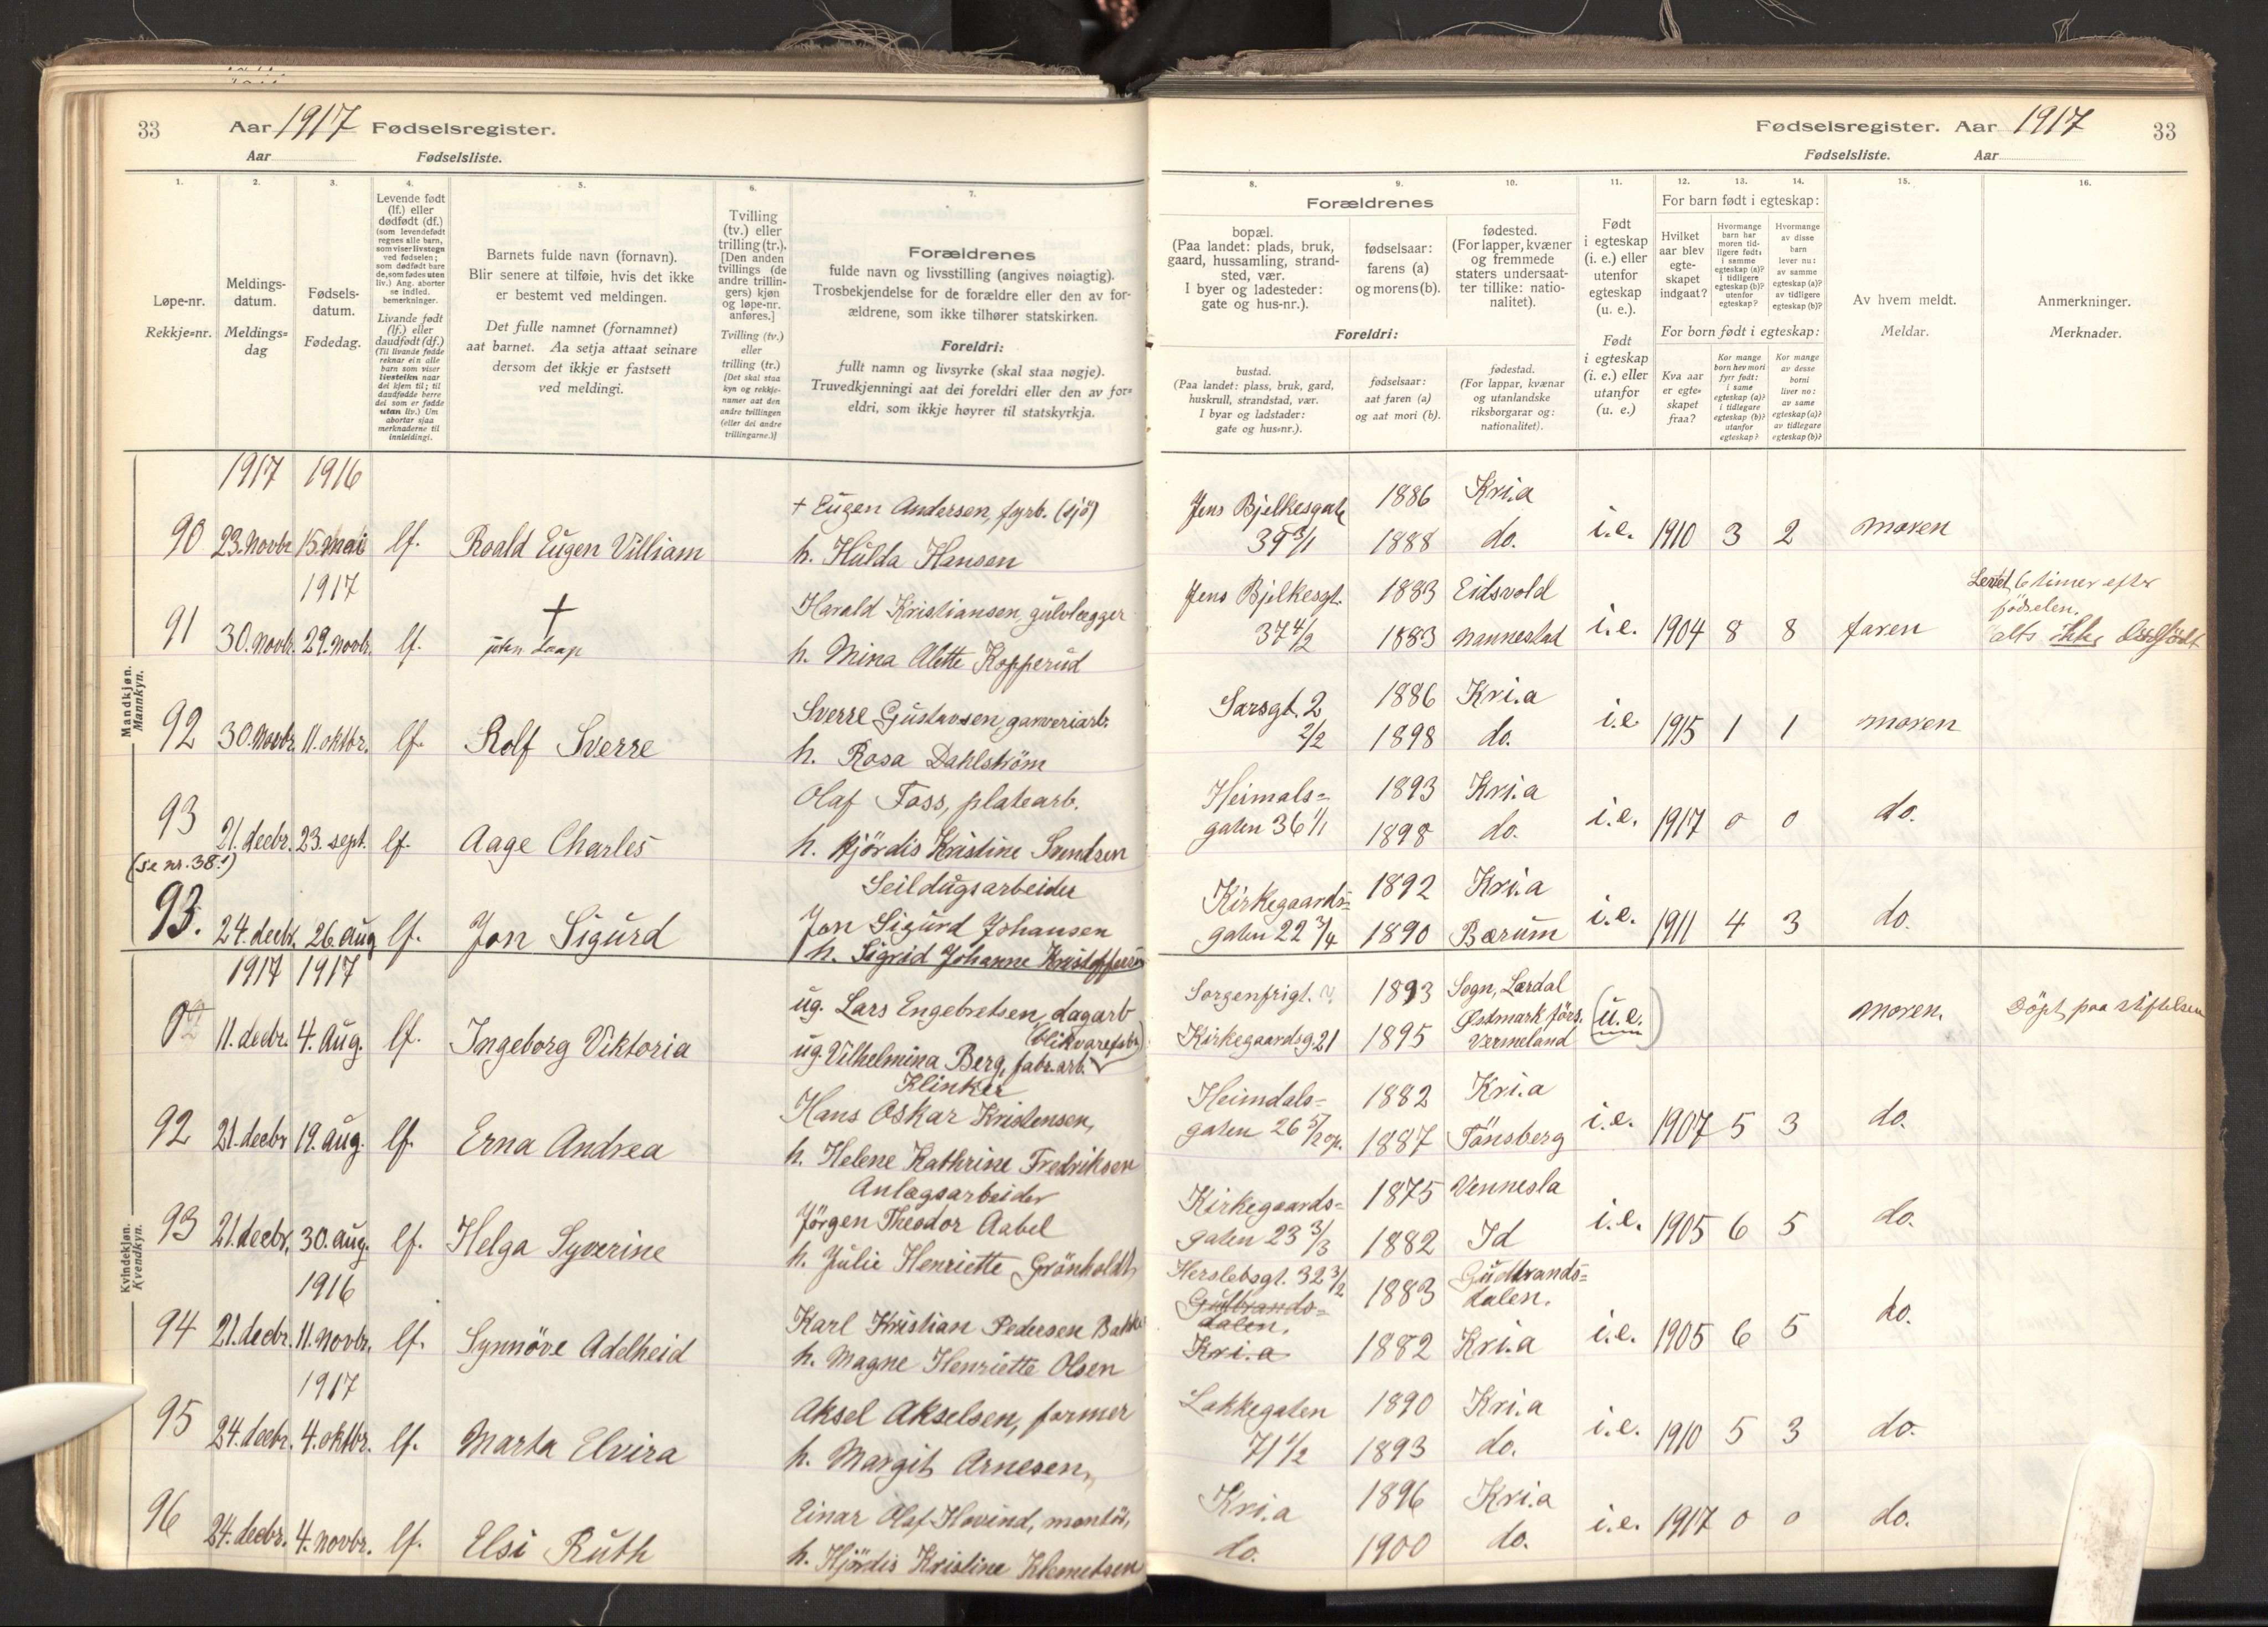 33 Aar 1917 Fødselsregister.
Aar Fødselsliste.
1. 2. 3. 4. 5. 6. 7.
Løpe-nr.
Rekkje-nr.
Meldings-
datum.
Meldings-
dag
Fødsels-
datum.
Fødedag.
Levende født
(lf.) eller
dødfødt (df.)
(som levendefødt
regnes alle barn,
som viser livstegn
ved fødselen;
som dødfødt bare
de, som fødes uten
liv.) Ang. aborter
se indled.
bemerkninger.
Livande født
(lf.) eller
daudfødt (df.)
(Til livande fødde
reknar ein alle
barn som viser
livsteikn naar
dei kjem til; til
daudfødde berre
dei som er fødde
utan liv.) Um
abortar sjaa
merknaderne til
innleidingi.
Barnets fulde navn (fornavn).
Blir senere at tilføie, hvis det ikke
er bestemt ved meldingen.
Det fulle namnet (fornamnet)
aat barnet. Aa setja attaat seinare
dersom det ikkje er fastsett
ved meldingi.
Tvilling
(tv.) eller
trilling (tr.).
[Den anden
tvillings (de
andre trillin-
gers) kjøn
og løpe-nr.
anføres.]
Tvilling (tv.)
eller
trilling (tr.)
[Det skal staa
kyn og rekkje-
numer aat den
andre tvillingen
(eller dei andre
trillingarne.)]
Forældrenes
fulde navn og livsstilling (angives nøiagtig).
Trosbekjendelse for de forældre eller den av for-
ældrene, som ikke tilhører statskirken.
Foreldri:
fullt namn og livsyrke (skal staa nøgje).
Truvedkjenningi aat dei foreldri eller den av for-
eldri, som ikkje høyrer til statskyrkja.
Mandkjøn.
Mannkyn.
1917 1916
90 23. novbr 15. mai lf. Roald Eugen Villiam
+ Eugen Andersen, fyrb. (sjö)
h. Hulda Hansen
1917
91 30. novbr. 29. novbr. lf. +
uten daap
Harald Kristiansen, gulvlægger
h. Mina Alette Kopperud
92 30. novbr. 11. oktbr. lf. Rolf Sverre
Sverre Gustavsen, garveriarb.
h. Rosa Dahlström
93 21. decbr. 23. sept. lf. Aage Charles
(se nr. 38!)
Olaf Foss, platearb.
h. Hjördis Kristine Svendsen
93. 24. decbr. 26. aug lf. Jon Sigurd
Seildugsarbeider
Jon Sigurd Johansen
h. Sigrid Johanne Kristoffersen
Kvindekjøn.
Kvendkyn.
1917 1917
11. decbr. 4. aug. lf. Ingeborg Viktoria
ug. Lars Engebretsen, dagarb
ug. Vilhelmina Berg, fabr.arb.
92 21. decbr 19. aug. lf. Erna Andrea
Klinker
Hans Oskar Kristensen,
h. Helene Kathrine Fredriksen
93 21. decbr. 30. aug. lf. Helga Syverine
Anlægsarbeider
Jörgen Theodor Aabel
h. Julie Henriette Grönholdt
1916
94 21. decbr. 11. novbr. lf. Synnöve Adelheid
Karl Kristian Pedersen Bakke
h. Magne Henriette Olsen
1917
95 24. decbr. 4. oktbr. lf. Marta Elvira
Aksel Akselsen, former
h. Margit Arnesen,
96 24. decbr. 4. novbr. lf. Elsi Ruth
Einar Olaf Hovind, montör,
h. Hjördis Kristine Klemetsen
Fødselsregister. Aar 1917 33
Fødselsliste. Aar
8. 9. 10. 11. 12. 13. 14. 15. 16.
Forældrenes
bopæl.
(Paa landet: plads, bruk,
gaard, hussamling, strand-
sted, vær.
I byer og ladesteder:
gate og hus-nr.).
fødselsaar:
farens (a)
og morens (b).
fødested.
(For lapper, kvæner
og fremmede
staters undersaat-
ter tillike: natio-
nalitet).
Foreldri:
bustad.
(Paa landet: plass, bruk, gard,
huskrull, strandstad, vær.
I byar og ladstader:
gate og hus-nr.).
fødselsaar:
aat faren (a)
og aat mori (b).
fødestad.
(For lappar, kvænar
og utanlandske
riksborgarar og:
nationalitet).
Født
i egteskap
(i. e.) eller
utenfor
egteskap
(u. e.).
Født
i egteskap
(i. e.) eller
utanfor
(u. e.)
For barn født i egteskap:
Hvilket
aar blev
egte-
skapet
indgaat?
Hvormange
barn har
moren tid-
ligere født:
i samme
egteskap (a)?
i tidligere
egteskap (b)?
utenfor
egteskap?
Hvormange
av disse
barn
lever nu:
av samme
egteskap (a)?
av tidligere
egteskap (b)?
For born født i egteskap:
Kva aar
er egte-
skapet
fraa?
Kor mange
born hev mori
fyrr født:
i same
egteskap (a)?
i tidlegare
egteskap (b)?
utanfor
egteskap?
Kor mange
av desse
borni
liver no:
av same
egteskap (a)?
av tidlegare
egteskap (b)?
Av hvem meldt.
Meldar.
Anmerkninger.
Merknader.
Jens Bjelkesgate 1886 Kri.a
39 3/1 1888 do. i.e. 1910 3 2 moren
Jens Bjelkesgt. 1883 Eidsvold
37 4/2 1883 Nannestad i.e. 1904 8 8 faren
Levet 6 timer efter
fødselen.
altså ikke dødfødt
Sarsgt. 2 1886 Kri.a
2/2 1898 do. i.e 1915 1 1 moren
Heimdals- 1893 Kri.a
gaten 36 1/1 1898 do. i.e. 1917 0 0 do.
Kirkegaards- 1892 Kri.a
gaten 22 3/4 1890 Bærum i.e. 1911 4 3 do.
Sorgenfrigt. 1893 Sogn, Lærdal
Kirkegaardsg 21 1895 Østmark førs.
Vermeland (u.e.) moren. Döpt paa stiftelsen
Heimdals- 1882 Kri.a
gaten 26 5/2 op. 1887 Tönsberg i.e. 1907 5 3 do.
Kirkegaards- 1875 Vennesla
gaten 23 3/3 1882 Id i.e. 1905 6 5 do.
Herslebsgt. 32 3/2 1883 Gudbrands-
dalen.
Gudbrands-
dalen.
Kri.a 1882 Kri.a i.e. 1905 6 5 do.
Lakkegaten 1890 Kri.a
71 1/2 1893 do. i.e. 1910 5 3 do.
Kri.a 1896 Kri.a
do. 1900 do. i.e. 1917 0 0 do.